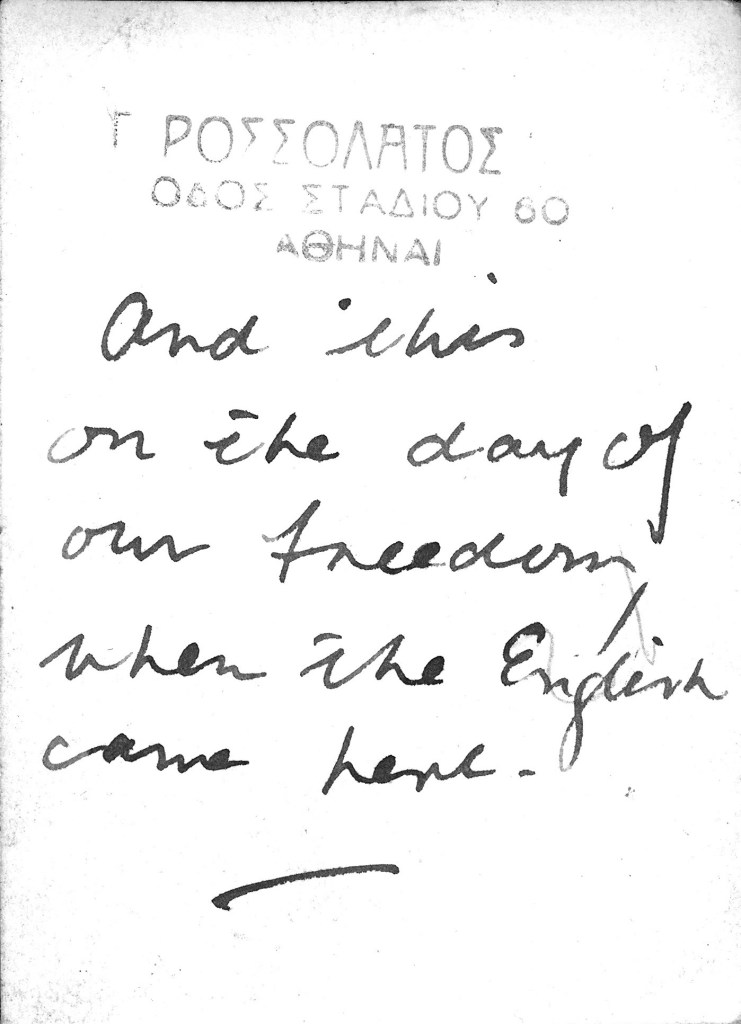 Γ ΡΟΣΣΟΛΑΤΟΣ
ΟΔΟΣ ΣΤΑΔΙΟΥ 60
ΑΘΗΝΑΙ
And this
on the day of
our freedom,
when the English
came here -